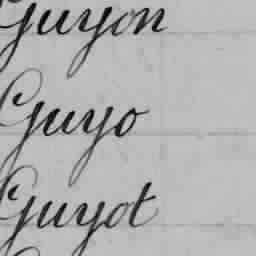 Guyon
Guyo
Guyot